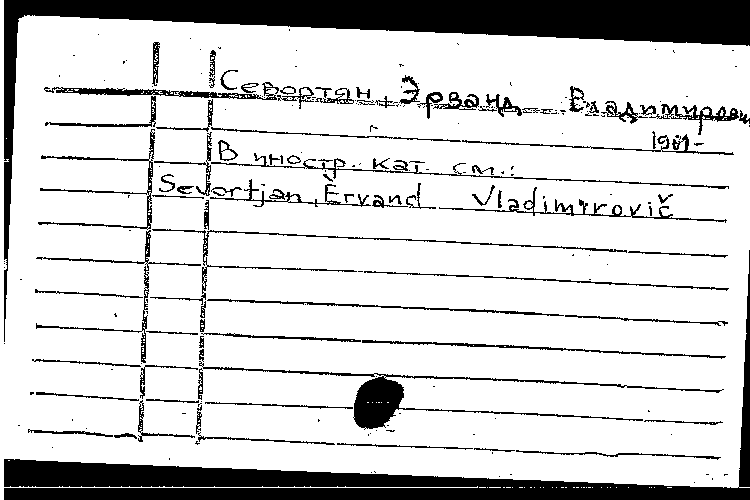 Севортян, Эрванд Владимирович
1901-
В иностр. кат. см.:
Sevortjan, Ėrvand Vladimirovič